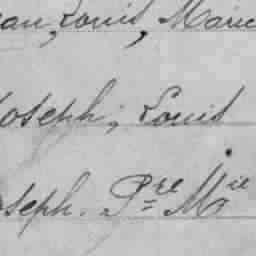 ean, Louis, Marie
Joseph, Louis
oseph. Pre Mie